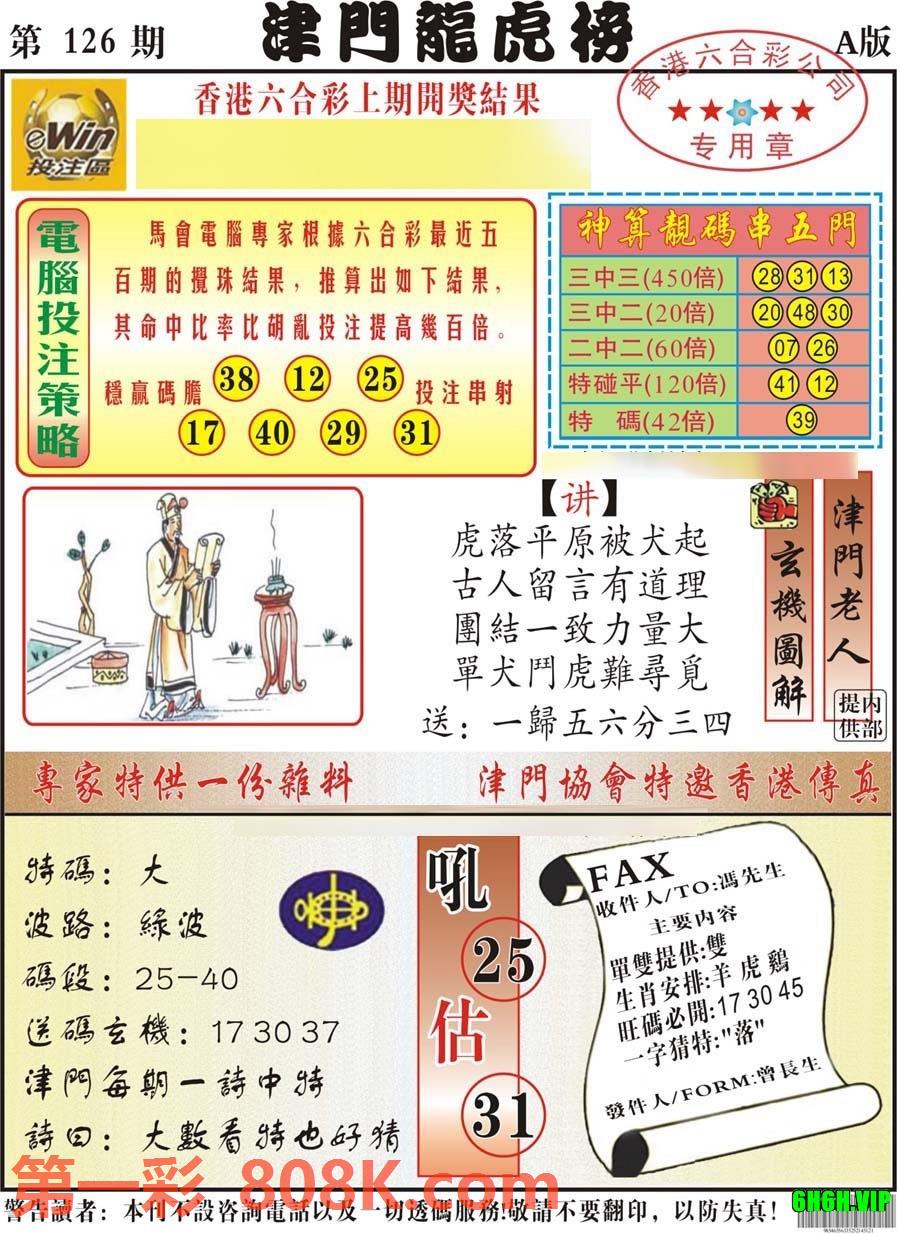 第 126 期
津門龍虎榜
A版
香港六合彩公司
专用章
eWin
投注區
香港六合彩上期開獎結果
電腦投注策略
馬會電腦專家根據六合彩最近五
百期的攪珠結果，推算出如下結果，
其命中比率比胡亂投注提高幾百倍。
穩贏碼膽 38 12 25 投注串射
17 40 29 31
神算靚碼串五門
三中三(450倍) 28 31 13
三中二(20倍) 20 48 30
二中二(60倍) 07 26
特碰平(120倍) 41 12
特 碼(42倍) 39
【讲】
虎落平原被犬起
古人留言有道理
團結一致力量大
單犬鬥虎難尋覓
送：一歸五六分三四
玄機圖解
津門老人
内部提供
專家特供一份雜料
津門協會特邀香港傳真
特碼：大
波路：綠波
碼段：25-40
送碼玄機：17 30 37
津門每期一詩中特
詩曰：大數看特也好猜
吼
25
估
31
FAX
收件人/TO:馮先生
主要内容
單雙提供:雙
生肖安排:羊 虎 鷄
旺碼必開:17 30 45
一字猜特:"落"
發件人/FORM:曾長生
第一彩 808K.com
警告讀者：本刊不設咨詢電話以及一切透碼服務!敬請不要翻印，以防失真!
6H6H.VIP